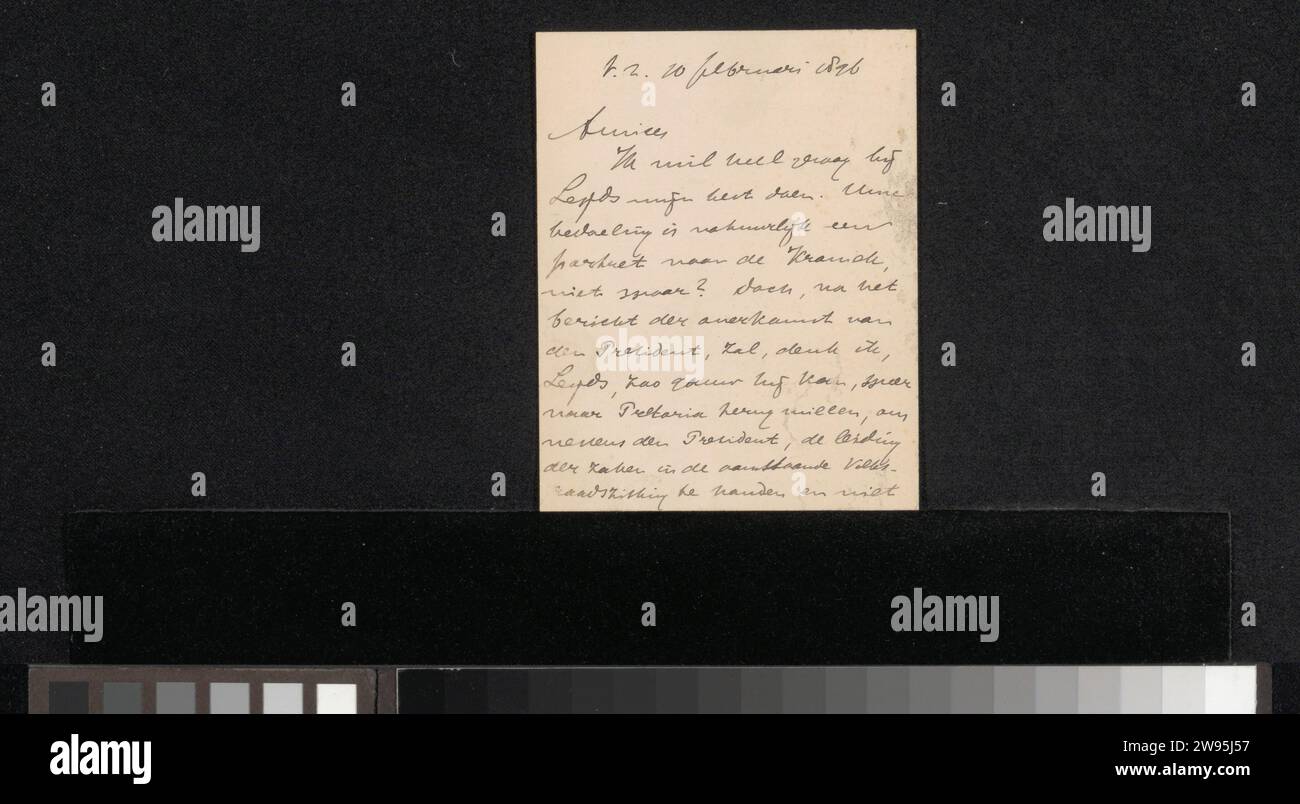 10 februari 1896
Amice
Ik wil heel graag bij
Leyds mijn best doen. Uwe
bedoeling is natuurlijk een
portret voor de Kroniek,
niet waar? Doch, na het
bericht der overkomst van
den President, zal, denk ik,
Leyds, zoo gauw hij kan, weer
naar Pretoria terug willen, om
nevens den President, de leiding
der zaken in de aanstaande Volks-
raadszitting te houden en niet
alamy
alamy
alamy
alamy
alamy
Image ID: 2W95J57
www.alamy.com